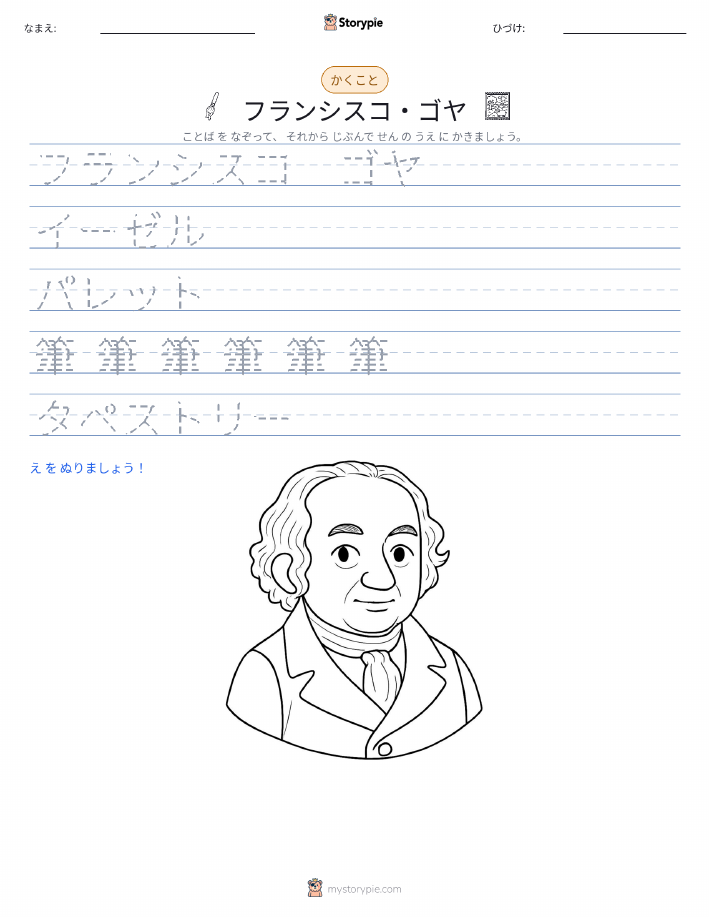 なまえ:
Storypie
ひづけ:
かくこと
フランシスコ・ゴヤ
ことば を なぞって、 それから じぶんで せん の うえ に かきましょう。
フランシスコ ゴヤ
イーゼル
パレット
筆 筆 筆 筆 筆 筆
タペストリー
え を ぬりましょう！
mystorypie.com